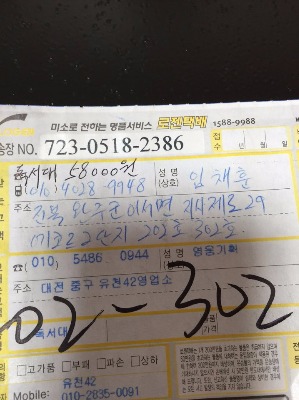 미소로 전하는 명품서비스 로젠택배 1588-9988
송장 NO. 723-0518-2386 접수 년 월 일
독서대 58000원
010 4028 9948 성명(상호) 임채훈
주소 전북 완주군 이서면 지사제로 29
302호
(010) 5486 0944 성명 영웅기획
주소 대전 중구 유천42영업소
02-302
독서대 가격
고가품 부패 파손 상하
유천42
Mobile: 010-2835-0091